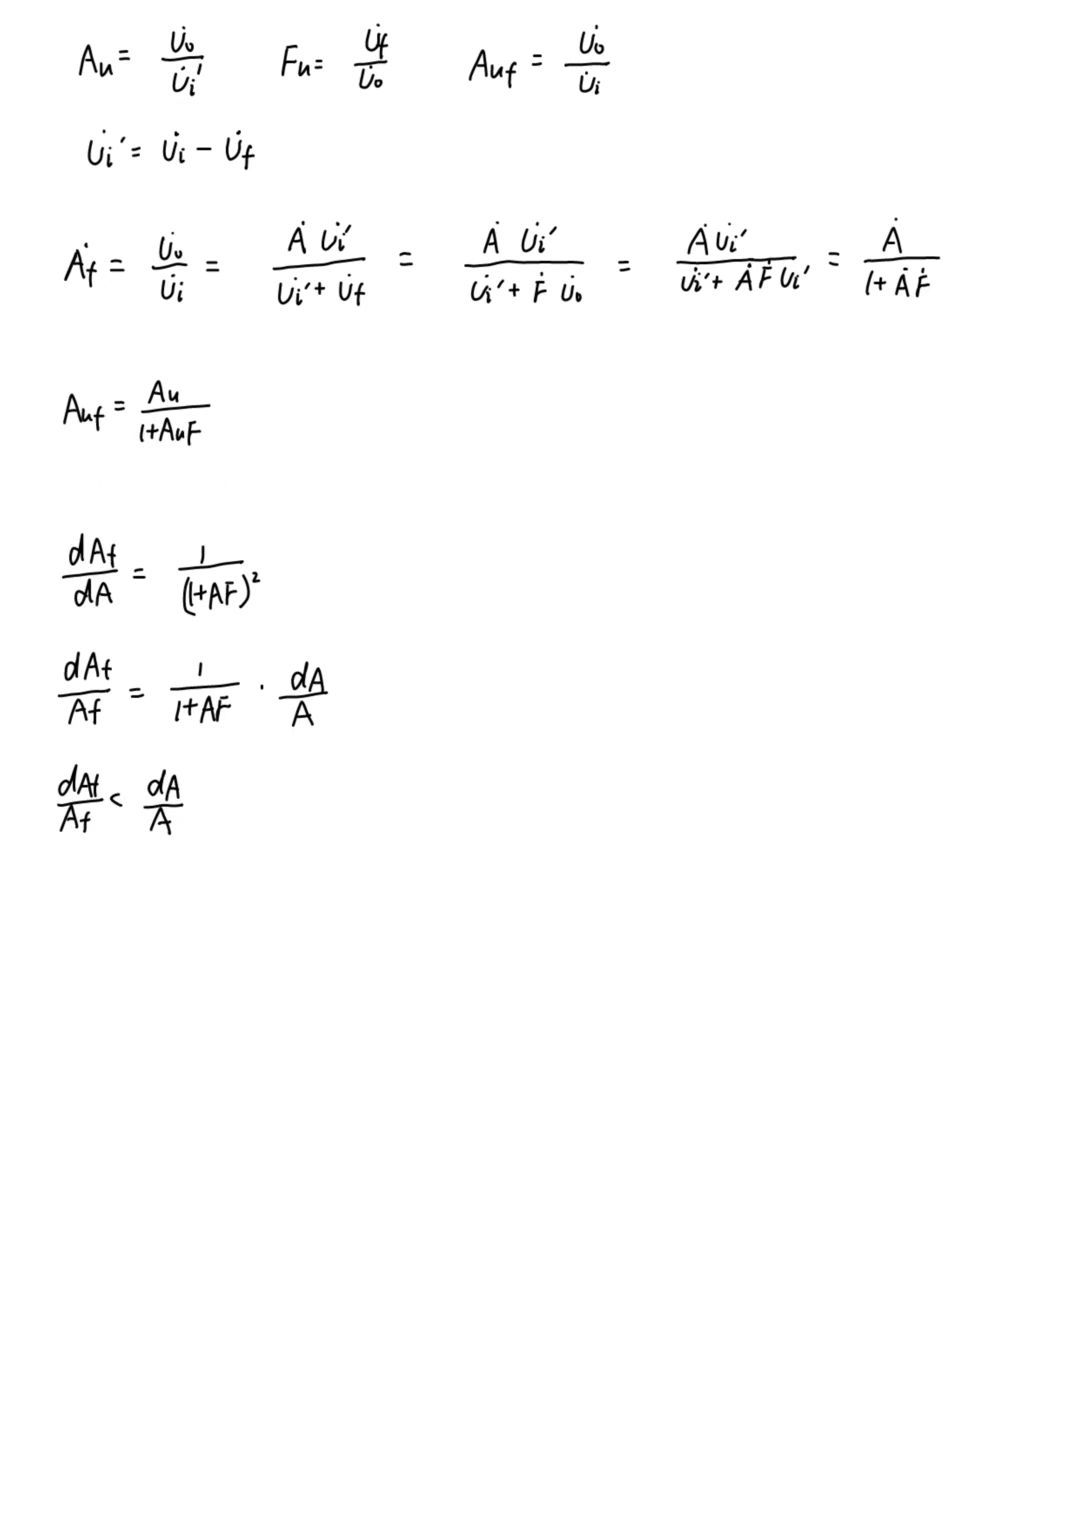 Au = U̇o/U̇i′ Fu = U̇f/U̇o Auf = U̇o/U̇i
U̇i′ = U̇i − U̇f
Ȧf = U̇o/U̇i = Ȧ U̇i′/(U̇i′ + U̇f) = Ȧ U̇i′/(U̇i′ + Ḟ U̇o) = Ȧ U̇i′/(U̇i′ + Ȧ Ḟ Ui′) = Ȧ/(1 + Ȧ Ḟ)
Auf = Au/(1+AuF)
dAf/dA = 1/(1+AF)²
dAf/Af = 1/(1+AF) · dA/A
dAf/Af < dA/A